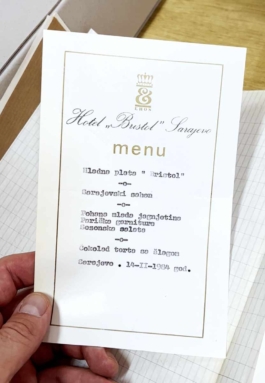 Hotel „Bristol" Sarajevo
menu
Hladna plata " Bristol"
-o-
Sarajevski sahan
-o-
Pohano mlado jagnjetina
Pariška garnitura
Sezonska salata
-o-
Čokolad torta sa šlagom
Sarajevo . 14-II-1984 god.